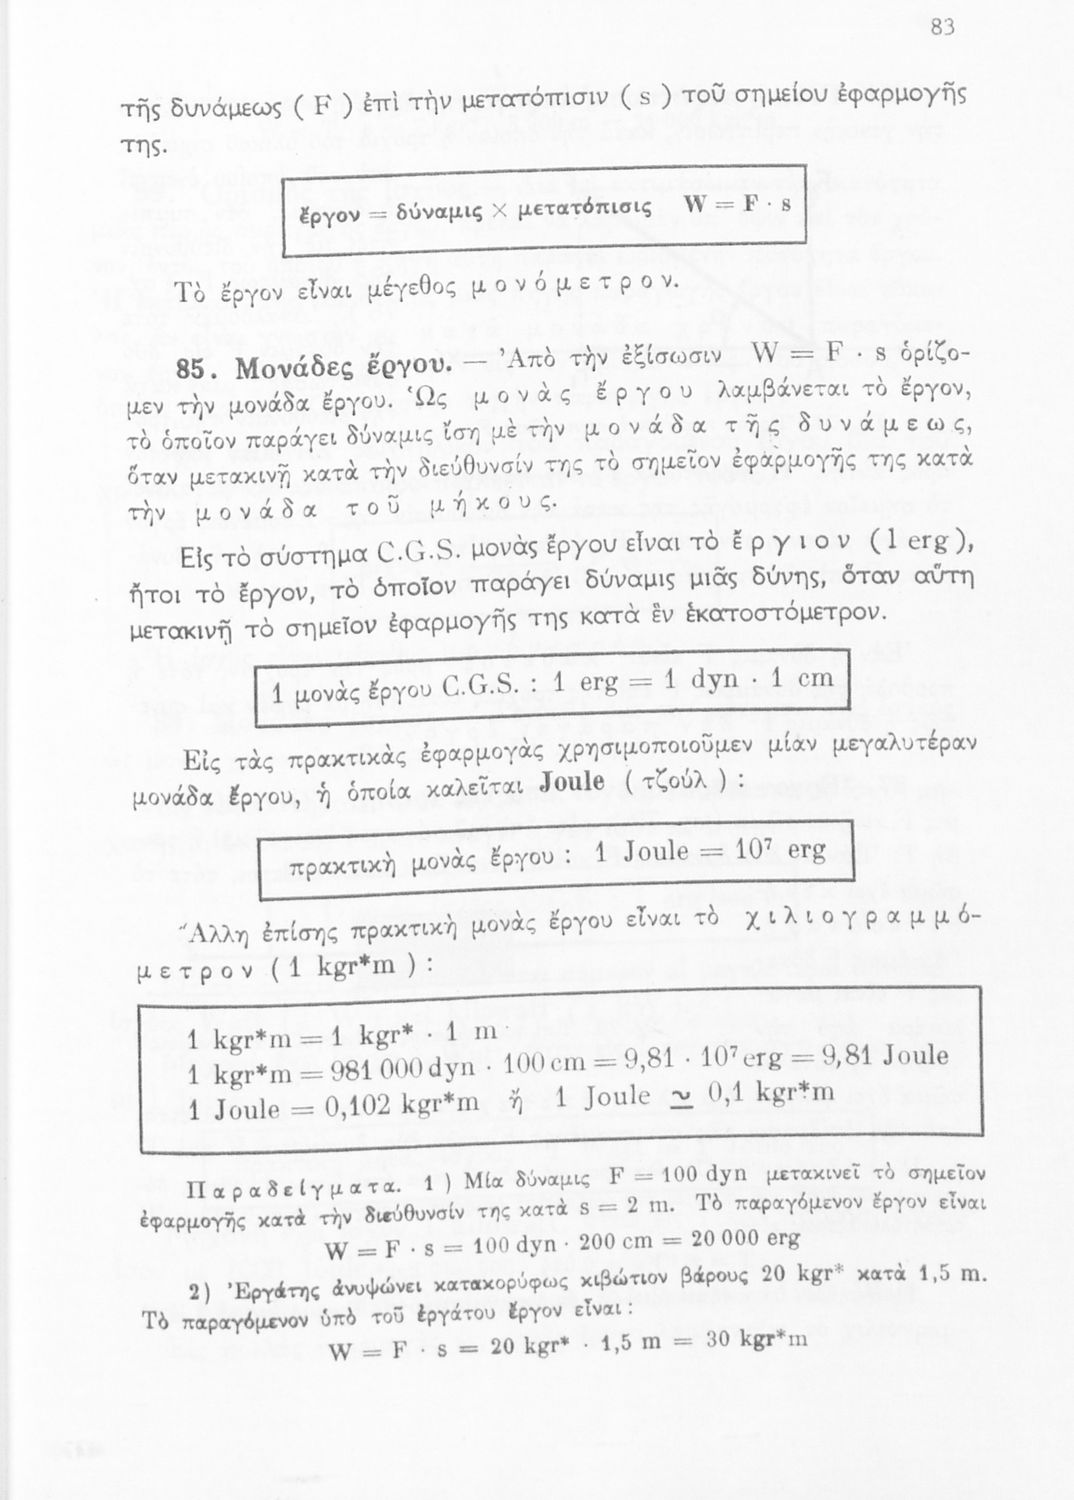 83
τῆς δυνάμεως ( F ) ἐπὶ τὴν μετατόπισιν ( s ) τοῦ σημείου ἐφαρμογῆς
της.
ἔργον = δύναμις × μετατόπισις W = F · s
Τὸ ἔργον εἶναι μέγεθος μονόμετρον.
85. Μονάδες ἔργου. — Ἀπὸ τὴν ἐξίσωσιν W = F · s ὁρίζο-
μεν τὴν μονάδα ἔργου. Ὡς μονὰς ἔργου λαμβάνεται τὸ ἔργον,
τὸ ὁποῖον παράγει δύναμις ἴση μὲ τὴν μονάδα τῆς δυνάμεως,
ὅταν μετακινῇ κατὰ τὴν διεύθυνσίν της τὸ σημεῖον ἐφαρμογῆς της κατὰ
τὴν μονάδα τοῦ μήκους.
Εἰς τὸ σύστημα C.G.S. μονὰς ἔργου εἶναι τὸ ἔργιον (1 erg),
ἤτοι τὸ ἔργον, τὸ ὁποῖον παράγει δύναμις μιᾶς δύνης, ὅταν αὕτη
μετακινῇ τὸ σημεῖον ἐφαρμογῆς της κατὰ ἓν ἑκατοστόμετρον.
1 μονὰς ἔργου C.G.S. : 1 erg = 1 dyn · 1 cm
Εἰς τὰς πρακτικὰς ἐφαρμογὰς χρησιμοποιοῦμεν μίαν μεγαλυτέραν
μονάδα ἔργου, ἡ ὁποία καλεῖται Joule ( τζούλ ) :
πρακτικὴ μονὰς ἔργου : 1 Joule = 10⁷ erg
Ἄλλη ἐπίσης πρακτικὴ μονὰς ἔργου εἶναι τὸ χιλιογραμμό-
μετρον ( 1 kgr*m ) :
1 kgr*m = 1 kgr* · 1 m
1 kgr*m = 981 000 dyn · 100 cm = 9,81 · 10⁷ erg = 9,81 Joule
1 Joule = 0,102 kgr*m ἤ 1 Joule ≃ 0,1 kgr*m
Παραδείγματα. 1 ) Μία δύναμις F = 100 dyn μετακινεῖ τὸ σημεῖον
ἐφαρμογῆς κατὰ τὴν διεύθυνσίν της κατὰ s = 2 m. Τὸ παραγόμενον ἔργον εἶναι
W = F · s = 100 dyn · 200 cm = 20 000 erg
2) Ἐργάτης ἀνυψώνει κατακορύφως κιβώτιον βάρους 20 kgr* κατὰ 1,5 m.
Τὸ παραγόμενον ὑπὸ τοῦ ἐργάτου ἔργον εἶναι :
W = F · s = 20 kgr* · 1,5 m = 30 kgr*m